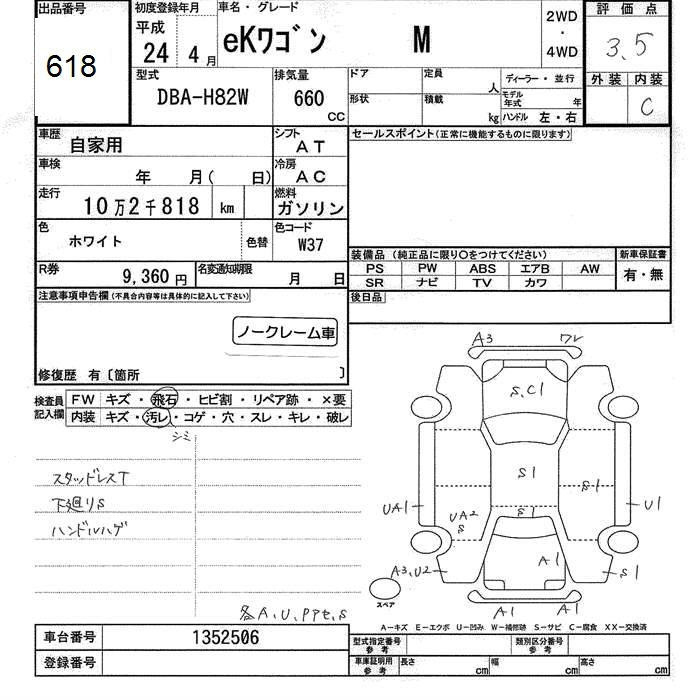 出品番号 初度登録年月 車名・グレード 2WD ・ 4WD 評価点
618 平成 24年 4月 eKワゴン M 3.5
型式 排気量 ドア 定員 人 ディーラー・並行 外装 内装
DBA-H82W 660 cc 形状 積載 kg モデル年式 年 C
ハンドル 左・右
車歴 自家用 シフト AT セールスポイント(正常に機能するものに限ります)
車検 年 月( 日) 冷房 AC
走行 10万2千818 km 燃料 ガソリン
色 ホワイト 色替 色コード W37
装備品 (純正品に限り○をつけてください) 新車保証書
R券 9,360円 名変通知期限 月 日 PS PW ABS エアB AW 有・無
SR ナビ TV カワ
注意事項申告欄(不具合内容等は具体的に記入して下さい) 後日品
ノークレーム車
修復歴 有〔箇所 〕
検査員記入欄 FW キズ・飛石・ヒビ割・リペア跡・×要
内装 キズ・汚レ・コゲ・穴・スレ・キレ・破レ
シミ
スタッドレスT
下廻りS
ハンドルハゲ
各A,U,PPセ,S
A3 ワレ
S,C1
S1
S1
S1
UA1
UA2 S
U1
A1
A3,U2
S1
A1 A1
スペア
A-キズ E-エクボ U-凹み W-補修跡 S-サビ C-腐食 XX-交換済
車台番号 1352506 型式指定番号 参考 類別区分番号 参考
登録番号 車庫証明用 参考 長さ cm 幅 cm 高さ cm